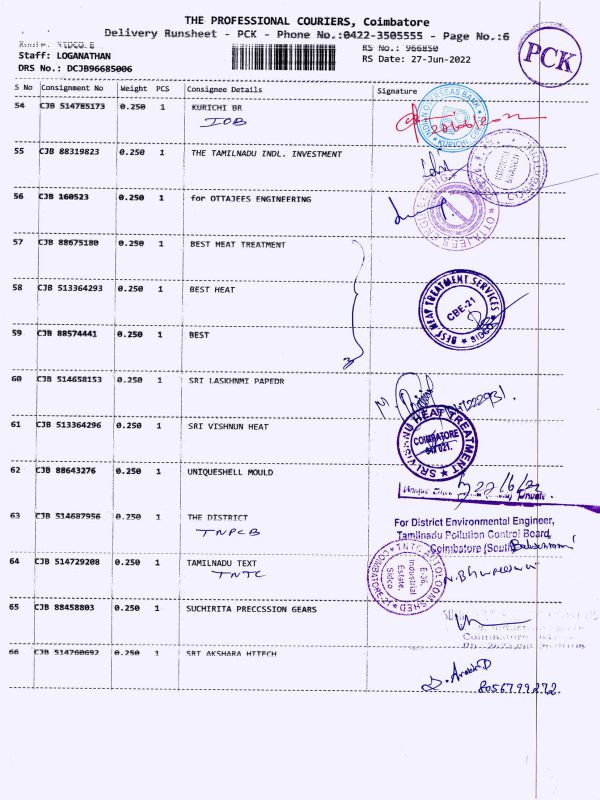 THE PROFESSIONAL COURIERS, Coimbatore
Delivery Runsheet - PCK - Phone No.:0422-3505555 - Page No.:6
Route: SIDCO E
RS No.: 966850
PCK
Staff: LOGANATHAN
RS Date: 27-Jun-2022
DRS No.: DCJB96685006
S No Consignment No Weight PCS Consignee Details Signature
54 CJB 514785173 0.250 1 KURICHI BR
IOB
INDIAN OVERSEAS BANK
KURICHI
55 CJB 88319823 0.250 1 THE TAMILNADU INDL. INVESTMENT
56 CJB 160523 0.250 1 for OTTAJEES ENGINEERING
OTTAJEES ENGINEERING
57 CJB 88675180 0.250 1 BEST HEAT TREATMENT
58 CJB 513364293 0.250 1 BEST HEAT
BEST HEAT TREATMENT SERVICES
CBE-21
SIDCO
59 CJB 88574441 0.250 1 BEST
60 CJB 514658153 0.250 1 SRI LASKHNMI PAPEDR
61 CJB 513364296 0.250 1 SRI VISHNUN HEAT
SRI VISHNU HEAT TREATMENT
COIMBATORE
641 021.
62 CJB 88643276 0.250 1 UNIQUESHELL MOULD
22/6/22
63 CJB 514687956 0.250 1 THE DISTRICT
TNPCB
For District Environmental Engineer,
Tamilnadu Pollution Control Board,
Coimbatore (South)
64 CJB 514729208 0.250 1 TAMILNADU TEXT
TNTC
E-36,
Industrial
Estate,
Sidco
COIMBATORE-21
65 CJB 88458803 0.250 1 SUCHIRITA PRECCSSION GEARS
Coimbatore
66 CJB 514760692 0.250 1 SRI AKSHARA HITECH
8056799272